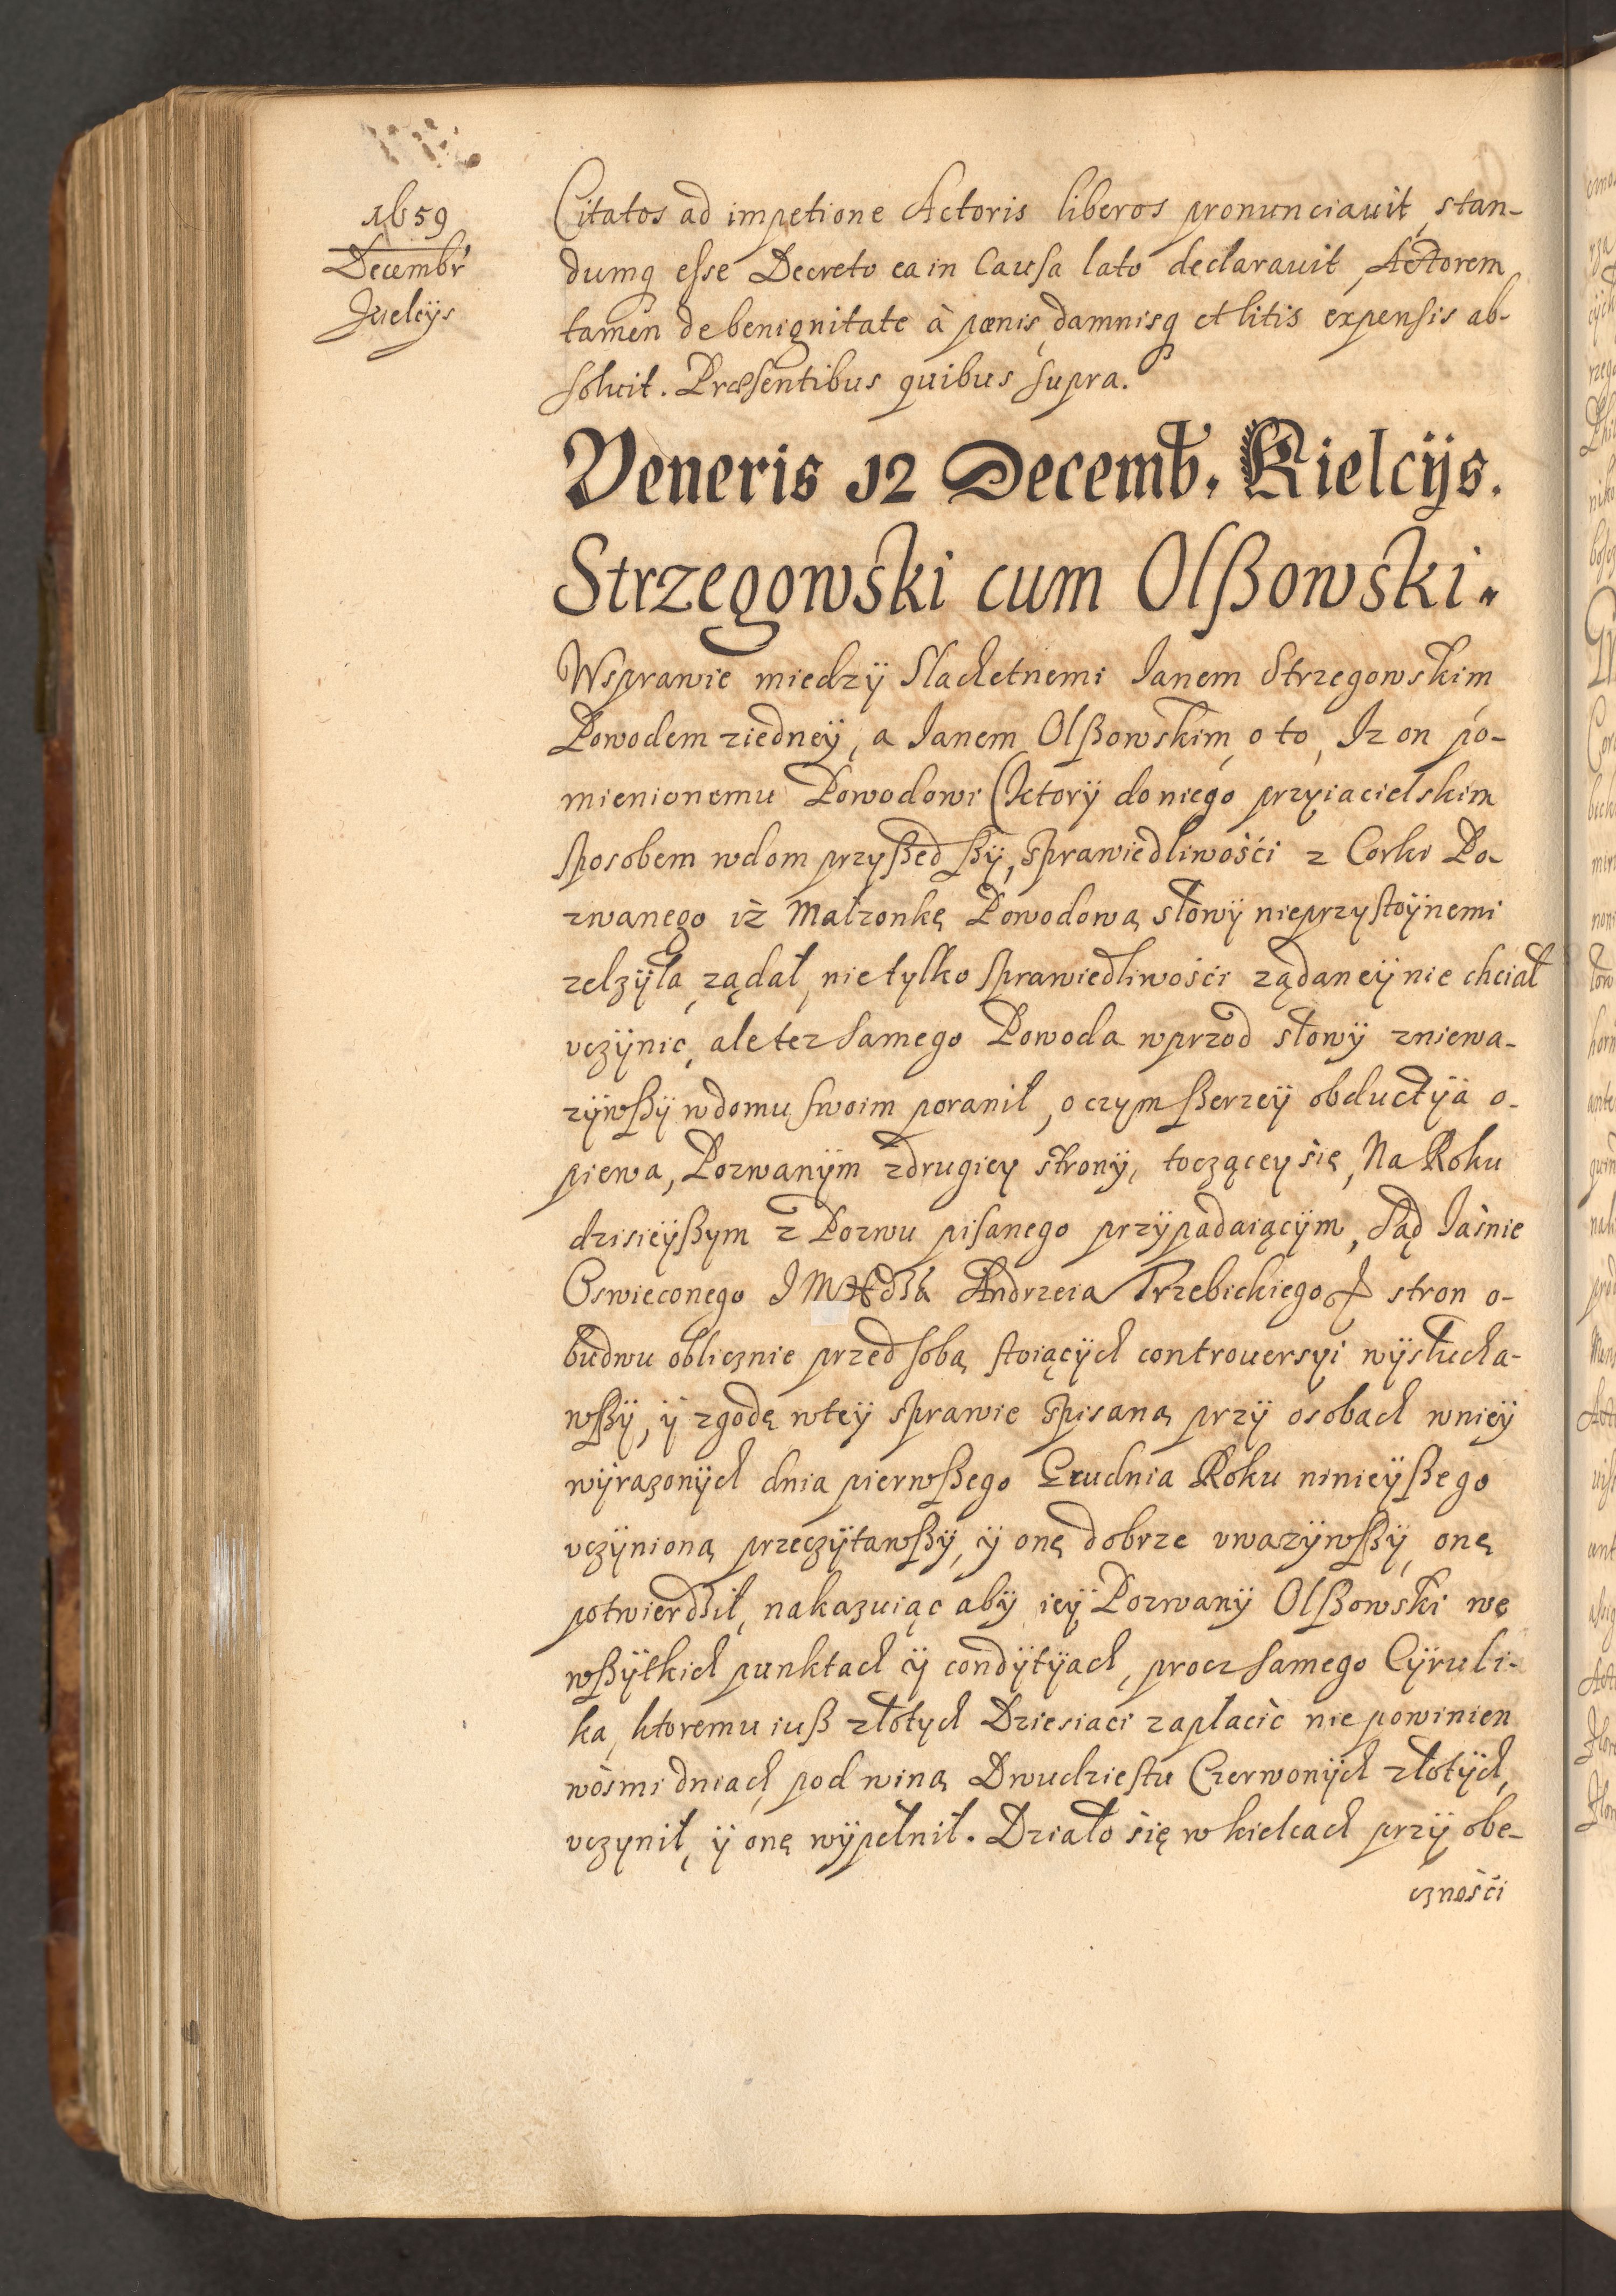 1659
Decembr
Kielcÿs
Citatos ad impetione Actoris liberos pronunciauit, stan-
dumq esse Decreto ea in Causa lato declarauit, Actorem
tamen de benignitate à pœnis, damnisq et litis expensis ab-
soluit. Præsentibus quibus supra.
Veneris 12 Decemb. Kielcÿs.
Strzegowski cum Olßowski.
Wsprawie miedzÿ Slachetnemi Ianem Strzegowskim
Powodem ziedneÿ, a Ianem Olßowskim o to, Iz on po-
mienionemu Powodowi (ktorÿ do niego przyiacielskim
sposobem wdom przyßedßÿ, sprawiedliwości z Corki Po-
zwanego iż Małzonkę Powodową słowÿ nieprzystoÿnemi
zelzÿła, ządał, nie tylko sprawiedliwości ządaneÿ nie chciał
vczÿnić, ale tez samego Powoda wprzod słowÿ zniewa-
zÿwßÿ wdomu swoim poranił, o czym ßerzeÿ obductÿa o-
piewa, Pozwanÿm zdrugiey stronÿ, toczącey się, Na Roku
dzisieÿßym z Pozwu pisanego przÿpadaiącÿm, Sąd Iaśnie
Oswieconego I M Xdza Andrzeia Trzebickiego stron o-
budwu oblicznie przed sobą stoiącÿch controuersyi wÿsłucha-
wßÿ, ÿ zgodę wteÿ sprawie spisaną przÿ osobach wnieÿ
wÿrazonÿch dnia pierwßego Grudnia Roku ninieÿßego
vczÿnioną przeczÿtawßÿ, ÿ onę dobrze vwazÿwßÿ, onę
potwierdził, nakazuiąc abÿ ieÿ Pozwanÿ Olßowski we
wßÿtkich punktach ÿ condÿtÿach, procz samego Cÿruli-
ka, ktoremu iuß złotych Dziesiąci zapłacić nie powinien
wośmi dniach pod winą Dwudziestu Czerwonÿch złotÿch,
vczynił, ÿ onę wÿpełnił. Działo się w kielcach przÿ obe-
czności